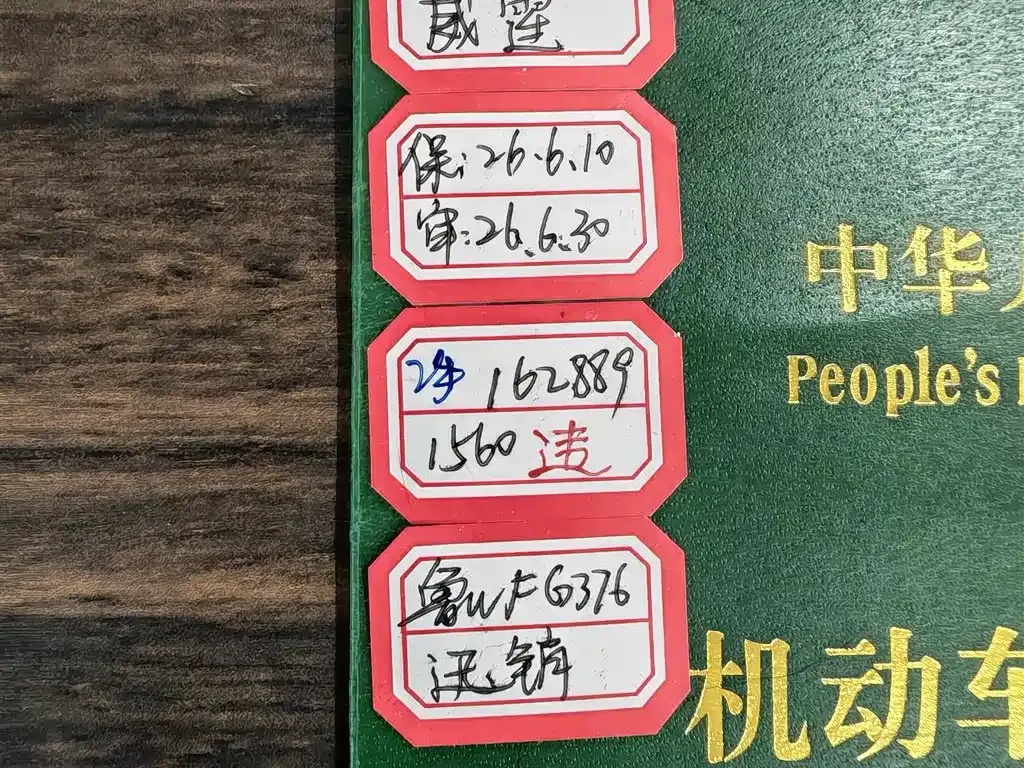 威霆
保:26.6.10
审:26.6.30
162889
1560 违
鲁WFG376
迅销
中华人
People's
机动车